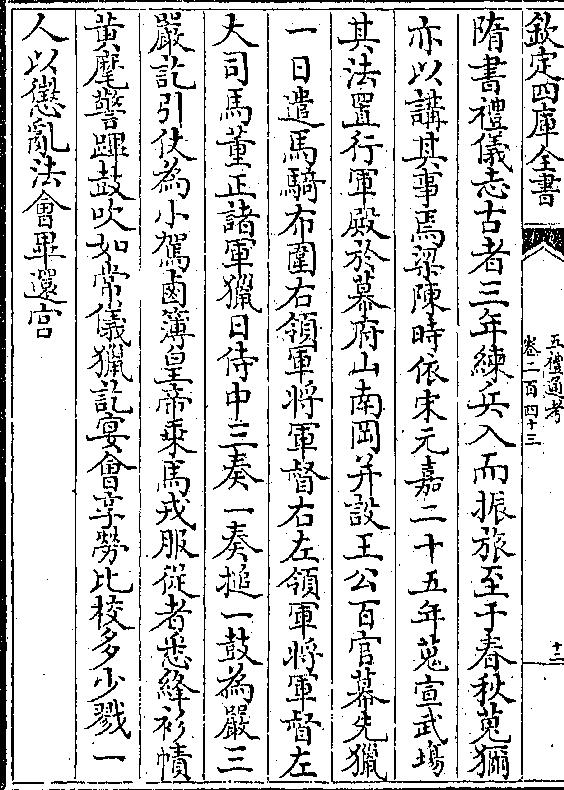 欽定四庫全書
五禮通考
卷二百四十三
十二
隋書禮儀志古者三年練兵入而振旅至于春秋蒐獮
亦以講其事焉梁陳時依宋元嘉二十五年蒐宣武塲
其法置行軍殿於幕府山南岡并設王公百官幕先獵
一日遣馬騎布圍右領軍將軍督右左領軍將軍督左
大司馬董正諸軍獵日侍中三奏一奏搥一鼓為嚴三
嚴訖引仗為小駕鹵簿皇帝乘馬戎服從者悉絳衫幘
黄麾警蹕鼓吹如常儀獵訖宴會享勞比校多少戮一
人以懲亂法會畢還宫